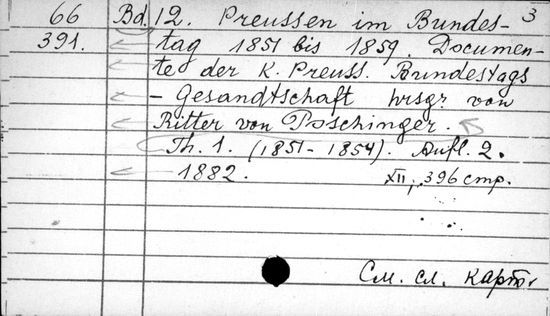 66 Bd. 12. Preussen im Bundes- 3
391. tag 1851 bis 1859. Documen-
te der K. Preuss. Bundestags
- Gesandtschaft hrsgr von
Ritter von Poschinger.
Th. 1. (1851-1854). Aufl. 2.
1882. XII, 396 стр.
См. сл. карт.